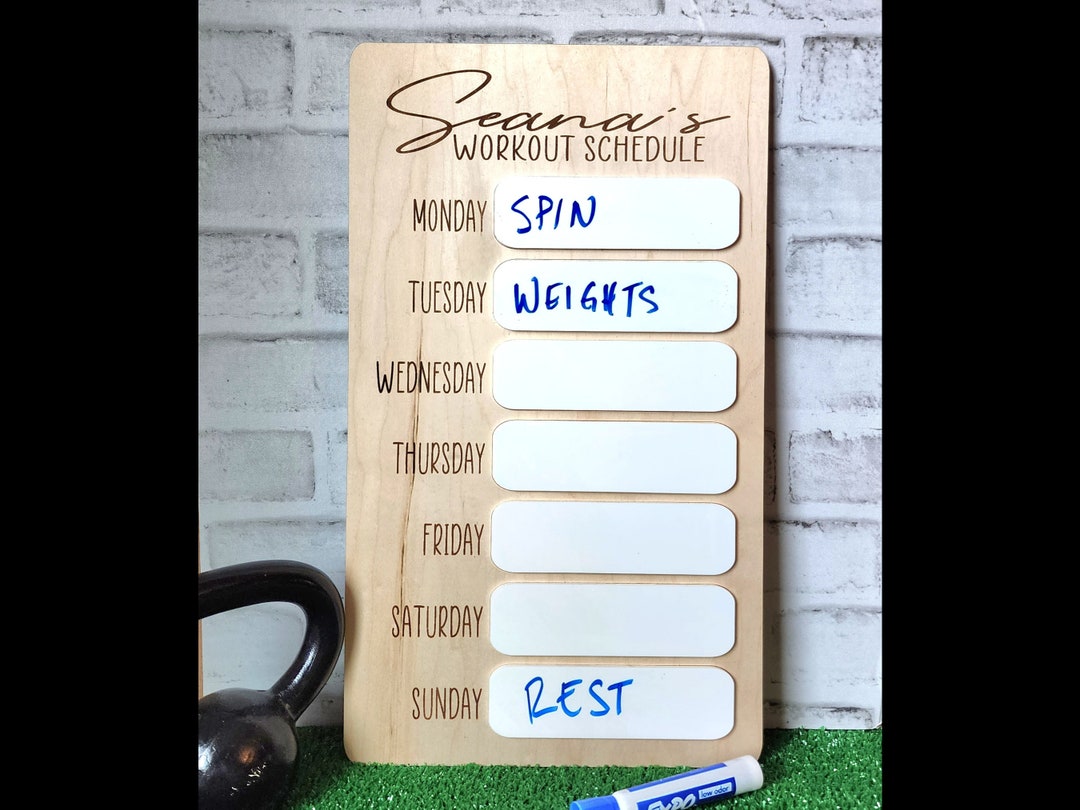 Seana's
WORKOUT SCHEDULE
MONDAY SPIN
TUESDAY WEIGHTS
WEDNESDAY
THURSDAY
FRIDAY
SATURDAY
SUNDAY REST
EXPO low odor